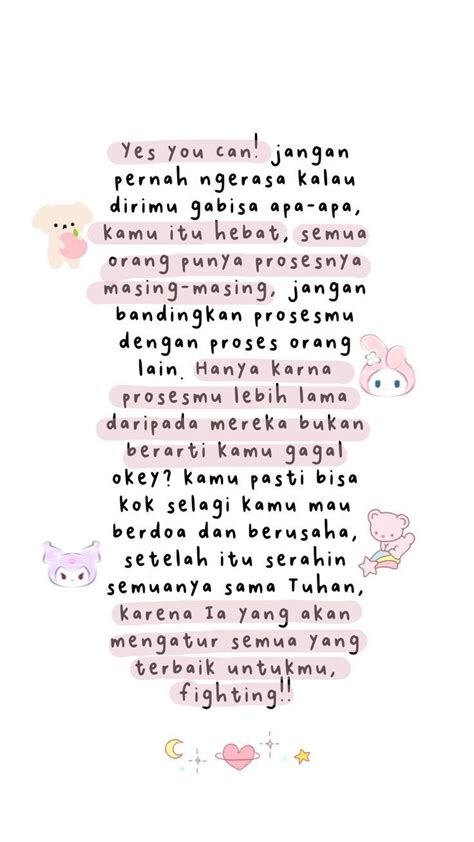 Yes you can! jangan
pernah ngerasa kalau
dirimu gabisa apa-apa,
kamu itu hebat, semua
orang punya prosesnya
masing-masing, jangan
bandingkan prosesmu
dengan proses orang
lain. Hanya karna
prosesmu lebih lama
daripada mereka bukan
berarti kamu gagal
okey? kamu pasti bisa
kok selagi kamu mau
berdoa dan berusaha,
setelah itu serahin
semuanya sama Tuhan,
karena Ia yang akan
mengatur semua yang
terbaik untukmu,
fighting!!